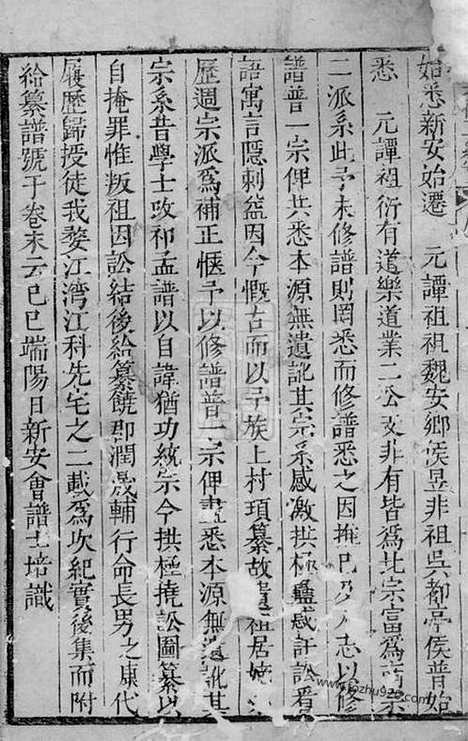 始悉新安始遷　元譚祖祖魏安鄉侯昱非祖吳都亭侯普始
悉　元譚祖衍有道樂道業二公支非有皆為此宗富為
二派系此予未修譜則罔悉而修譜悉之因掩已志以修
譜普一宗俾共悉本源無遺訛其宗系感激拱極訐訟看
語寓言隱刺益因今慨古而以予族上村項纂故祖居
歷週宗派為補正愜予以修譜普一宗俾盡悉本源無遺訛其
宗系昔學士改祁孟譜以自諱猶功統宗今拱極撓訟圖纂以
自掩罪惟叛祖因訟結後給纂饒郡潤晟輔行命長男之康代
履歷歸授徒我婺江灣江科先宅之二載為次紀實後集而附
給纂譜號于卷末云己巳端陽日新安會譜士培識